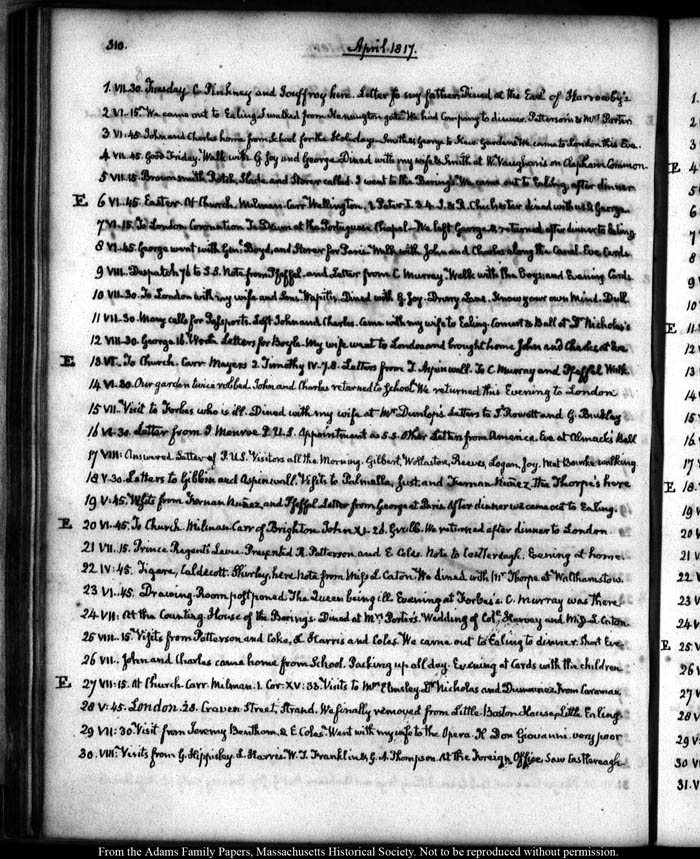 310.
April 1817.
1. VII.30. Tuesday. C. Pinkney and Jouffroy here. Letter to my father. Dined at the Earl of Harrowby's
2 VI.15. We came out to Ealing. I walked from Kensington gate. We had Company to dinner. Patterson & Mrs Porter
3 VI.45. John and Charles home from School for the Holidays. Smith & George to Kew Gardens. We came to London this Eve.
4 VII.45. Good Friday. Walk with G. Joy and George. Dined with my wife & Smith at W. Vaughan's on Clapham Common
5 VII.15. Brownsmith, Rotch, Slade and Storer called. I went to the Baring's. We came out to Ealing after dinner
E 6 VI.45. Easter. At Church. Milman. Carr. Wellington. 1. Peter I. 3.4. J. B. R. Chichester dined with us & George
7 VI.15. To London. Coronation Te Deum at the Portuguese Chapel. We left George & returned after dinner to Ealing
8 VI.45. George went with Genl. Boyd, and Storer for Paris. Walk with John and Charles along the Canal. Eve. Cards
9 VIII. Despatch 76 to S.S. Note from Pfeffel, and Letter from C. Murray. Walk with the Boys and Evening Cards
10 VII.30. To London with my wife and Sons. Wapiti. Dined with G. Joy. Drury Lane. Know your own Mind. Dull
11 VII.30. Many calls for Passports. Left John and Charles. Came with my wife to Ealing. Concert & Ball at Dr Nicholas's
12 VIII.30. George 16. Worth. Letters for Boyle. My wife went to London and brought home John and Charles at Eve
E 13. VI. To Church. Carr. Mayers 2. Timothy IV.7.8. Letters from T. Aspinwall. To C. Murray and Pfeffel. Walk
14 VI.30. Our garden twice robbed. John and Charles returned to School. We returned this Evening to London
15 VII. Visit to Forbes who is ill. Dined with my wife at Mr Dunlop's. Letters to T. Rowett and G. Buckley
16 VI.30. Letter from J. Monroe P.U.S. Appointment as S.S. Other Letters from America. Eve at Almack's Ball
17 VIII: Answered Letter of P.U.S. Visitors all the Morning. Gilbert, Wollaston, Reeves, Logan, Joy. Met Bourke walking
18 V.30. Letters to Gibbin and Aspinwall. Visits to Palmella, Just, and Fernan Nuñez. The Thorpe's here
19 V:45. Visits from Fernan Nuñez, and Pfeffel. Letter from George at Paris. After dinner we came out to Ealing.
E 20 VI.45. To Church. Milman. Carr of Brighton. John XI. 26. We returned after dinner to London
21 VII.15. Prince Regent's Levee. Presented R. Patterson and E. Coles. Note to Castlereagh. Evening at home
22 IV:45. Tigere, Caldecott, Shirley, here. Note from Miss L. Caton. We dined with Mr Thorpe at Walthamstow.
23 VI.45. Drawing-Room postponed. The Queen being ill. Evening at Forbes's. C. Murray was there
24 VII: At the Counting-House of the Barings. Dined at Mrs Porter's. Wedding of Cole. Harvey and Miss L. Caton
25 VIII.15. Visits from Patterson and Coke, L. Harris and Coles. We came out to Ealing to dinner. Short Eve
26 VII. John and Charles came home from School. Packing up all day. Evening at Cards with the children
E 27 VII:15. At Church. Carr. Milman. 1. Cor: XV: 33. Visits to Mrs Elmsley, Dr Nicholas and Dumouriez. From Caraman
28 V:45. London. 28. Craven Street, Strand. We finally removed from Little Boston House, Little Ealing
29 VII:30 Visit from Jeremy Bentham, & E. Coles. Went with my wife to the Opera. Il Don Giovanni. very poor
30. VIII: Visits from G. Hippisley. L. Harris. W. T. Franklin & G. A. Thompson. At the Foreign Office. Saw Castlereagh.
From the Adams Family Papers, Massachusetts Historical Society. Not to be reproduced without permission.